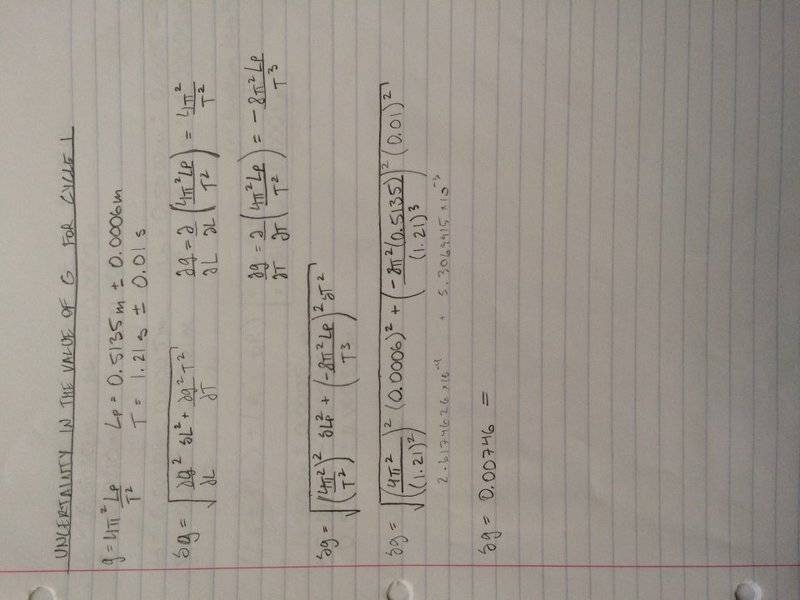 UNCERTAINTY IN THE VALUE OF G FOR CYCLE 1
g = 4π² Lp/T²   Lp = 0.5135 m ± 0.0006 m
T = 1.21 s ± 0.01 s
δg = √(∂g²/∂L δL² + ∂g²/∂T δT²)   ∂g/∂L = ∂/∂L (4π²Lp/T²) = 4π²/T²
∂g/∂T = ∂/∂T (4π²Lp/T²) = -8π²Lp/T³
δg = √((4π²/T²)² δLp² + (-8π²Lp/T³)² δT²)
δg = √((4π²/(1.21)²)² (0.0006)² + (-8π²(0.5135)/(1.21)³)² (0.01)²)
2.6174626 x10⁻⁴ + 5.3069915 x10⁻³
δg = 0.00746 =